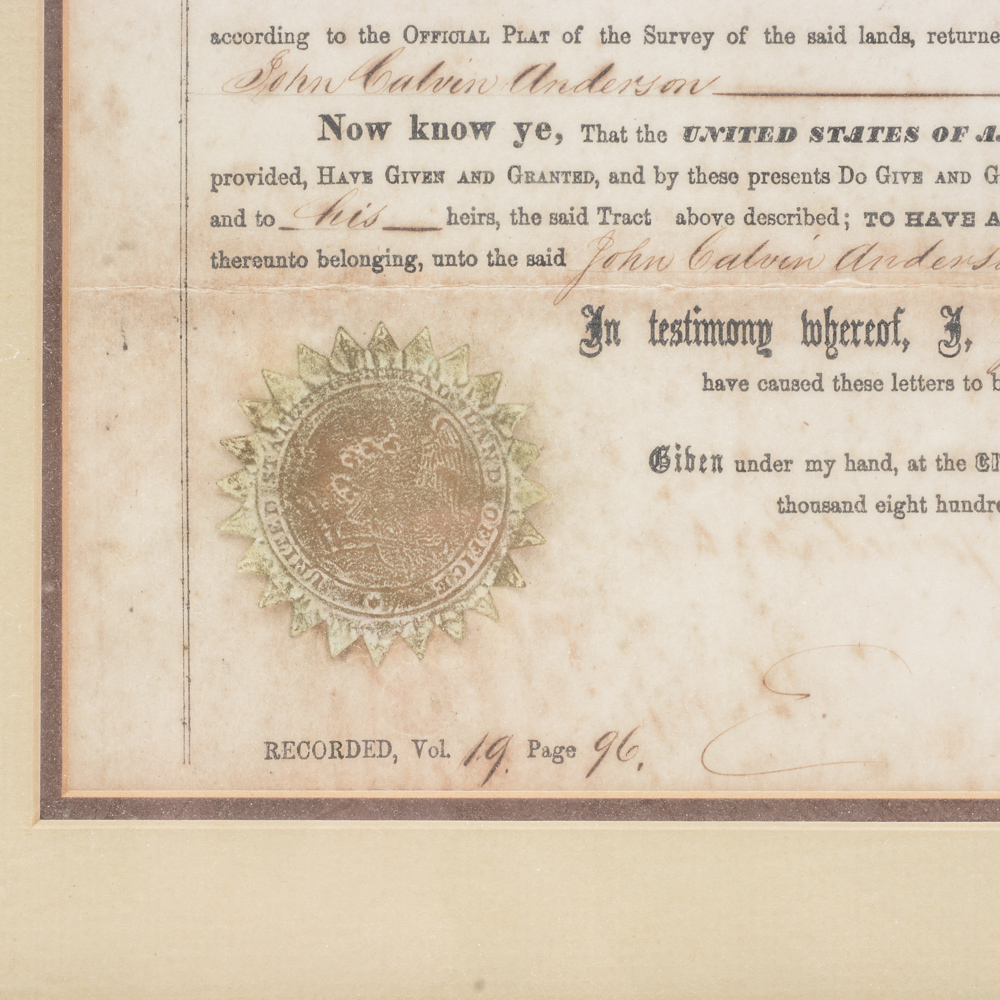 according to the OFFICIAL PLAT of the Survey of the said lands, returne
John Calvin Anderson
Now know ye, That the UNITED STATES OF A
provided, HAVE GIVEN AND GRANTED, and by these presents Do GIVE AND G
and to his heirs, the said Tract above described; TO HAVE A
thereunto belonging, unto the said John Calvin Anders
In testimony whereof, I,
have caused these letters to b
Given under my hand, at the CI
thousand eight hundre
UNITED STATES GENERAL LAND OFFICE
RECORDED, Vol. 19. Page 96.